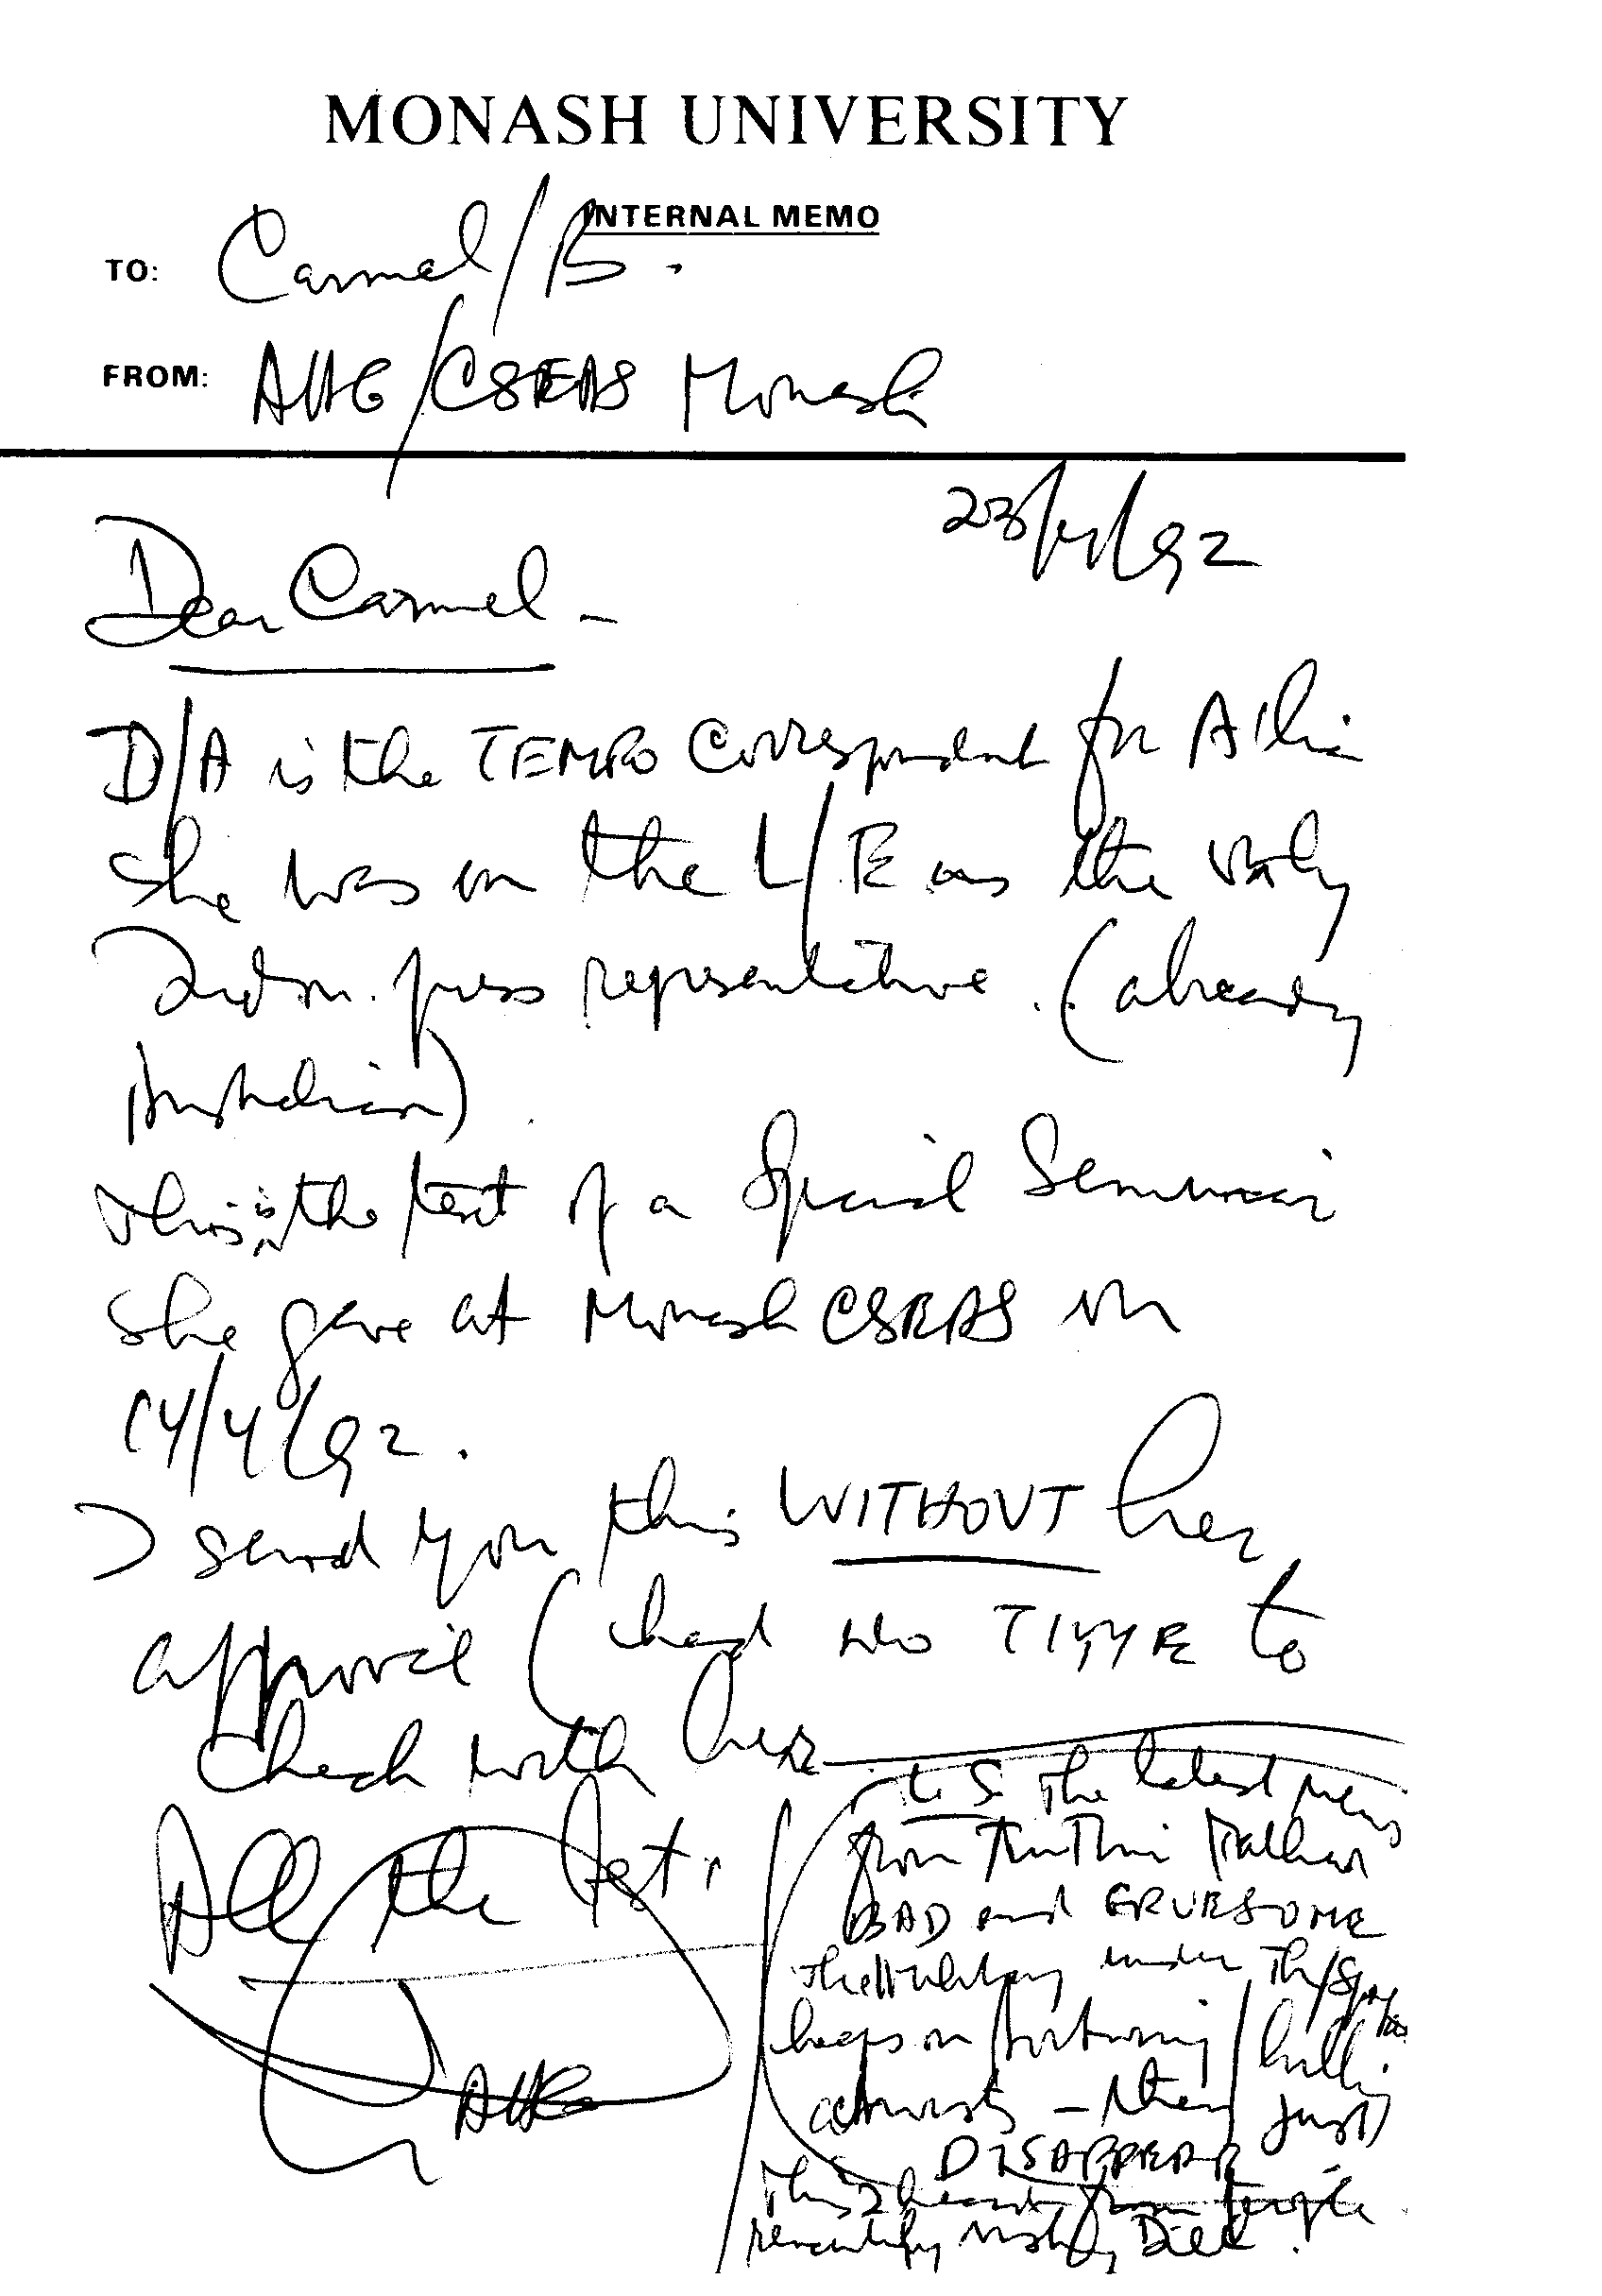 MONASH UNIVERSITY
INTERNAL MEMO
TO: Carmel/B.
FROM: AHG/CSEAS Monash
23/4/92
Dear Carmel -
D/A is the TEMPO Correspondent for A'lia
She was on the L/E as the only
Indon. press representative. (already
Australian)
This is the text of a Special Seminar
she gave at Monash CSEAS on
14/4/92.
I send you this WITHOUT her
approval (had NO TIME to
check with her
All the best,
P.S. The latest news
from
BAD and GRUESOME
The military under
keeps on torturing/killing
activists - they just
DISAPPEAR
This I heard from people
recently Dili.